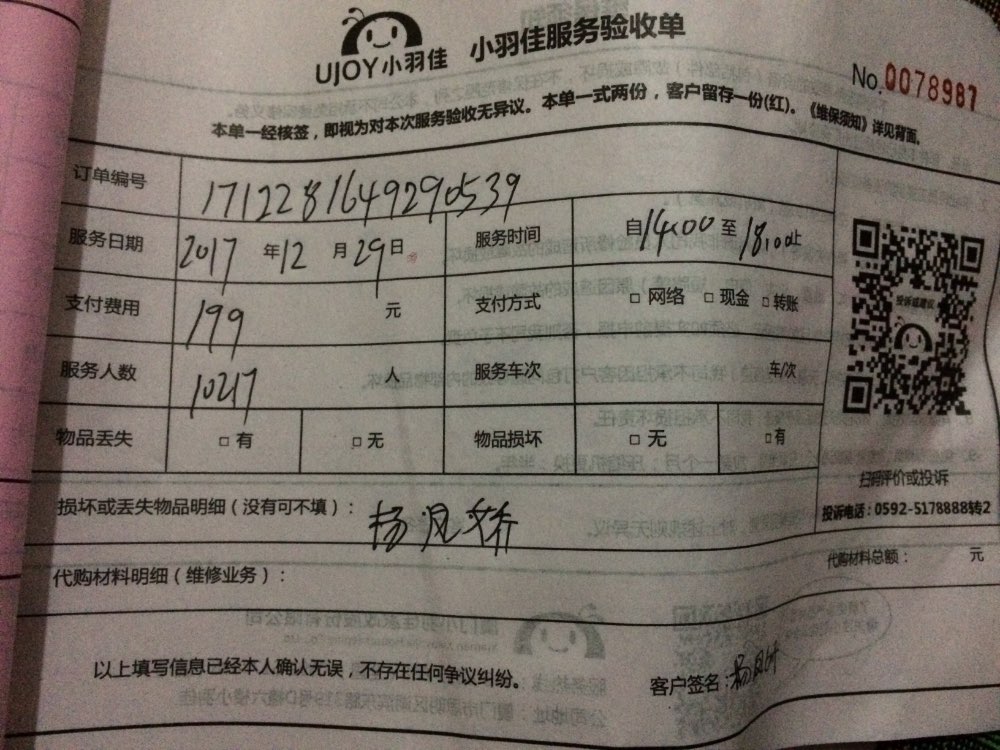 UJOY小羽佳 小羽佳服务验收单
No.0078987
本单一经核签，即视为对本次服务验收无异议。本单一式两份，客户留存一份(红)。《维保须知》详见背面。
订单编号 1712281649290539
服务日期 2017 年 12 月 29 日 服务时间 自 14:00 至 18:00 止
支付费用 199 元 支付方式 □ 网络 □ 现金 □ 转账
服务人数 10217 人 服务车次 车/次
物品丢失 □ 有 □ 无 物品损坏 □ 无 □ 有
投诉或建议
扫码评价或投诉
投诉电话：0592-5178888转2
损坏或丢失物品明细（没有可不填）： 杨凤娇
代购材料明细（维修业务）： 代购材料总额： 元
以上填写信息已经本人确认无误，不存在任何争议纠纷。 客户签名：杨凤